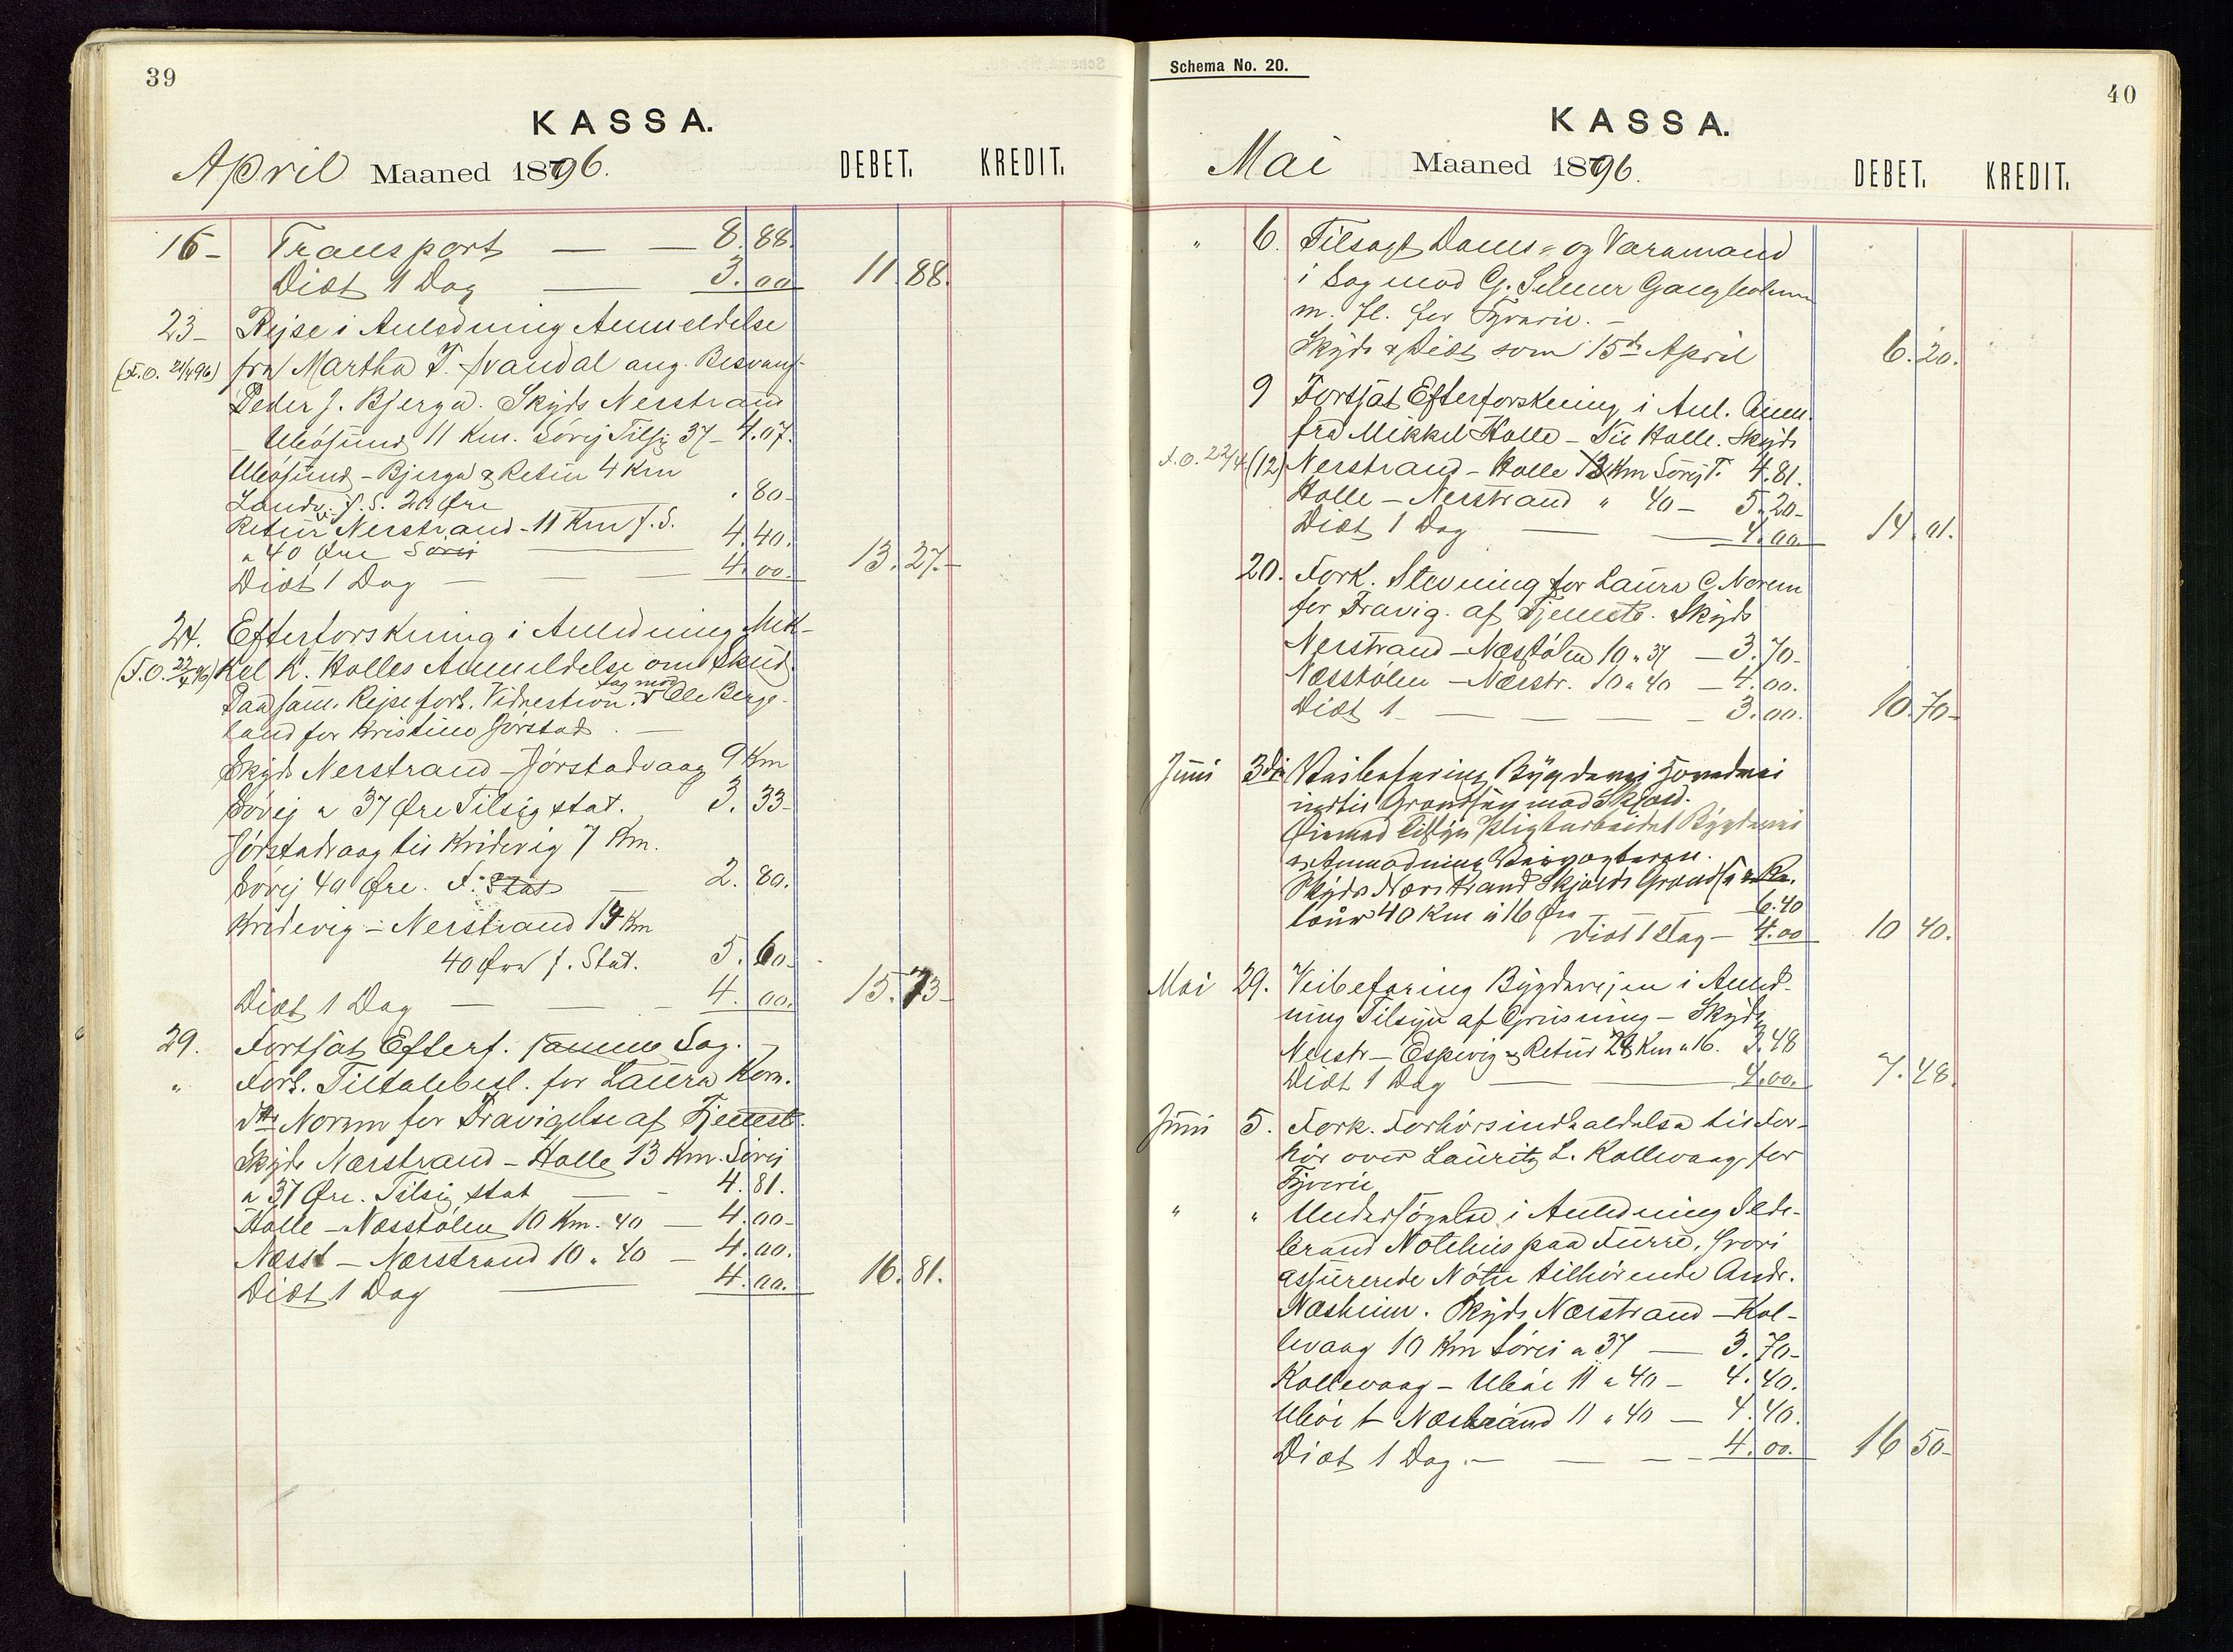 39
KASSA.
April Maaned 1896.
DEBET. KREDIT.
16 - Transport — — 8.88.
Diæt 1 Dag — 3.00 11.88.
23 - Rejse i Anledning Anmeldelse
(F.O. 21/4 96) fra Martha T. Hvandal ang. Besvang-
Peder J. Bjerga. Skyds Nerstrand
Ubøsund 11 Km. Søvej Tilsig 37 - 4.07.
Ubøsund - Bjerga & Retur 4 Km
Landv. f. S. 20 Øre .80 -
Retur Nerstrand - 11 Km f. S.
a 40 Øre Søvej — 4.40.
Diæt 1 Dag — — — 4.00. 13.27. -
24. Efterforskning i Anledning Mik-
(F.O. 22/4 96) kel K. Halles Anmeldelse om Skud.
Paa sam. Rejse fork. Vidnestevn. Sag mod Ole Berge-
land for Kristine Jørstad. —
Skyds Nerstrand - Jørstadvaag 9 Km
Søvej a 37 Øre Tilsig stat. 3.33 -
Jørstadvaag til Kridevig 7 Km.
Søvej 40 Øre. F. Stat — 2.80.
Kridevig - Nerstrand 14 Km
40 Øre f. Stat. 5.60 -
Diæt 1 Dag — — - 4.00. 15.73 -
29. Fortsat Efterf. samme Sag. -
" Fork. Tiltalebesl. for Laura Korn.
dtr Norum for Fravigelse af Tjeneste.
Skyds Nærstrand - Halle 13 Km. Søvej
a 37 Øre. Tilsig stat — - 4.81.
Halle - Næsstølen 10 Km. 40 — 4.00 -
Næsst - Nærstrand 10 " 40 — 4.00.
Diæt 1 Dag — 4.00. 16.81.
Schema No. 20.
40
KASSA.
Mai Maaned 1896.
DEBET. KREDIT.
" 6. Tilsagt Doms- og Varamænd
i Sag mod G. Selmer Gangholmen
m. fl. for Tyveri. -
Skyds & Diæt som 15de April 6.20.
9 Fortsat Efterforskning i Anl. Anm.
fra Mikkel Halle - Til Halle. Skyds
F.O. 22/4 (12) Nerstrand - Halle 13 Km Søvej T. 4.81.
Halle - Nerstrand " 40 - 5.20 -
Diæt 1 Dag — — 4.00. 14.01.
20. Fork. Stevning for Laura C. Norum
for Fravig. af Tjeneste. Skyds
Nerstrand - Næsstølen 10 a 37 — 3.70 -
Næsstølen - Nærstr. 10 a 40 — 4.00.
Diæt 1 — — — - 3.00. 10.70 -
Juni 3die Veibefaring Bygdevei Hovedvei
indtil Grændsen mod Skjold.
Øiemed Tilsyn Pligtarbeidet Bygdevei
e. Anmodning Veivogteren.
Skyds Nærstrand Skjolds Grændse & Re-
tour 40 Km a 16 Øre — 6.40
Diæt 1 Dag - 4.00 10 40.
Mai 29. Veibefaring Bygdevejen i Anled-
ning Tilsyn af Grusning - Skyds
Nerstr - Espevig & Retur 28 Km a 16. 3.48
Diæt 1 Dag — — 4.00. 7.48.
Juni 5. Fork. Forhørsindkaldelse til For-
hør over Lauritz L. Kallevaag for
Tyveri
" " Undersøgelse i Anledning Ilde-
brand Nøtehus paa Furre, hvori
assurerede Nøter tilhørende Andr.
Næsheim. Skyds Nærstrand - Kal-
levaag 10 Km Søvei a 37 — 3.70 -
Kallevaag - Ubøe 11 a 40 - 4.40.
Ubøe t Næstrand 11 " 40 — 4.40.
Diæt 1 Dag. — — — - 4.00. 16 50 -